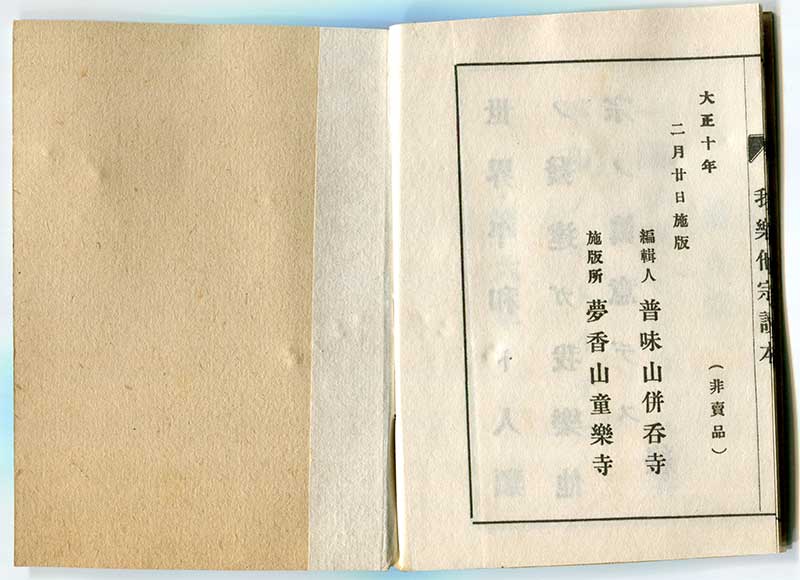 我樂他宗讀本
大正十年
二月廿日施版
(非賣品)
編輯人 普味山併呑寺
施版所 夢香山童樂寺